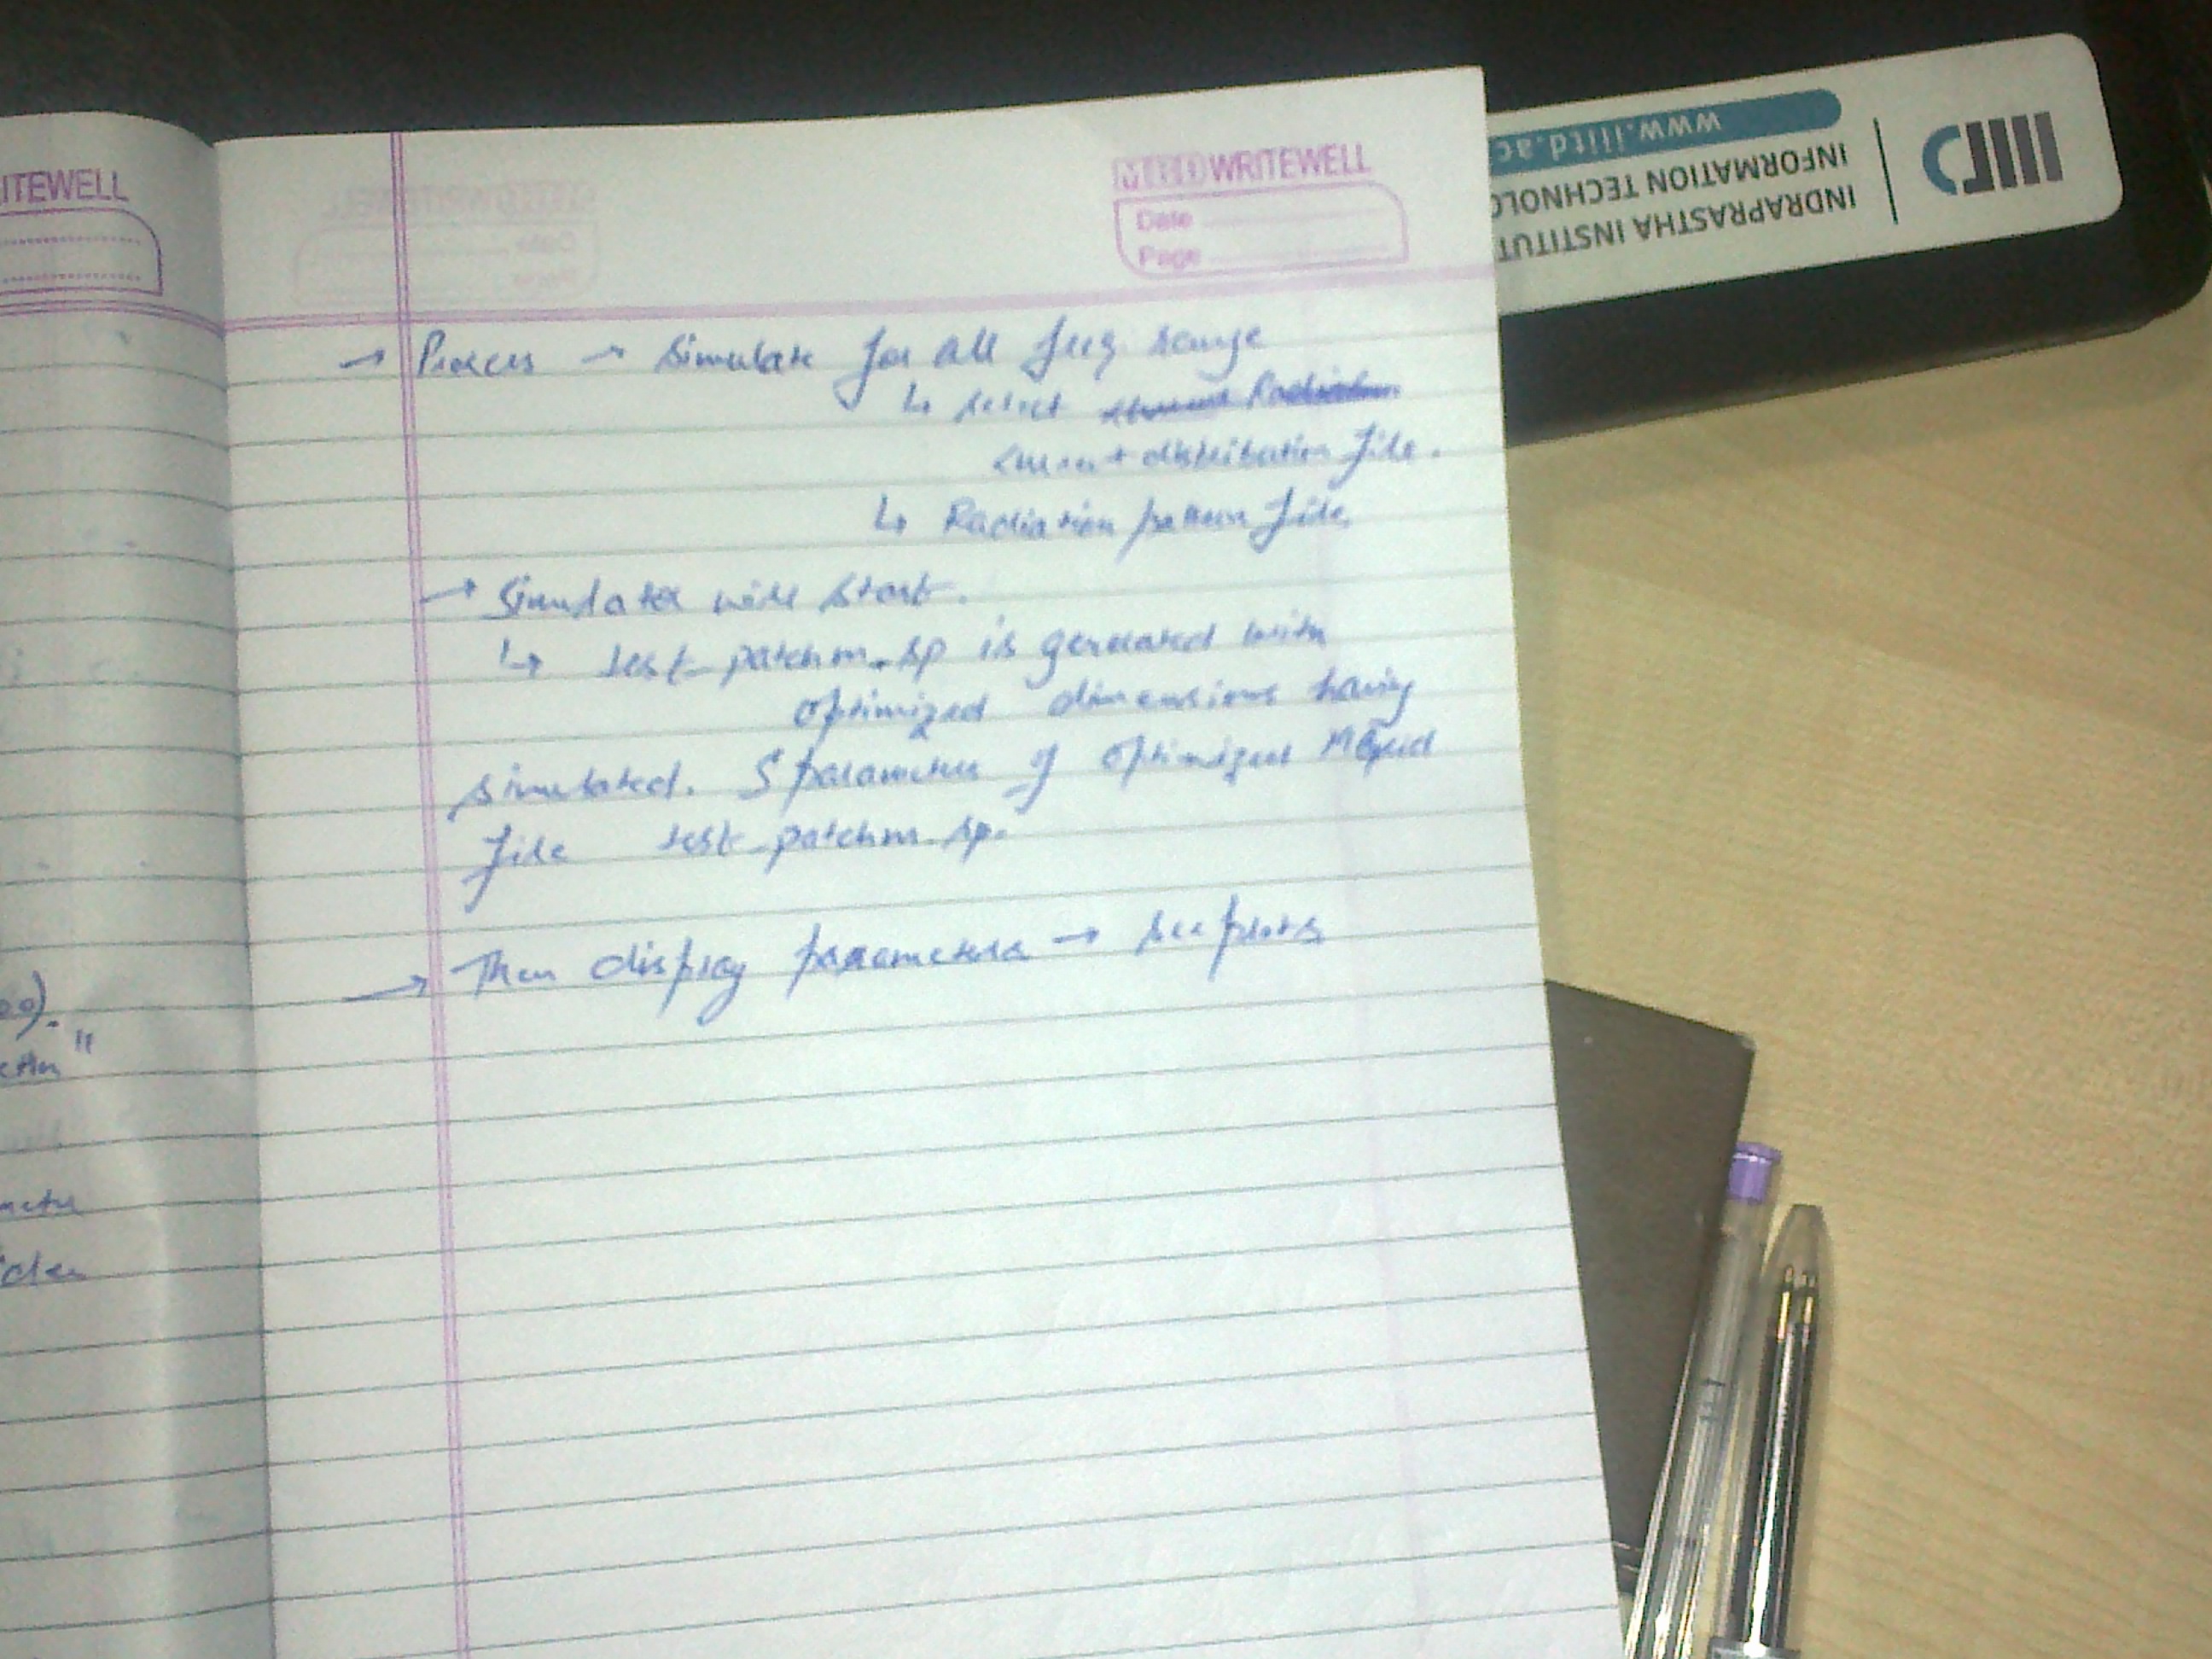 ITEWELL
NEELD WRITEWELL
Date
Page
→ Process → Simulate for all freq range
↳ select current Radiation
current distribution file.
↳ Radiation pattern file
→ Simulator will start.
↳ test_patchm.sp is generated with
optimized dimensions having
simulated. S parameter of optimized MGrid
file test_patchm.sp.
→ Then display parameters → see plots
INDRAPRASTHA INSTITUT
INFORMATION TECHNOLO
www.iiitd.ac
IIITD